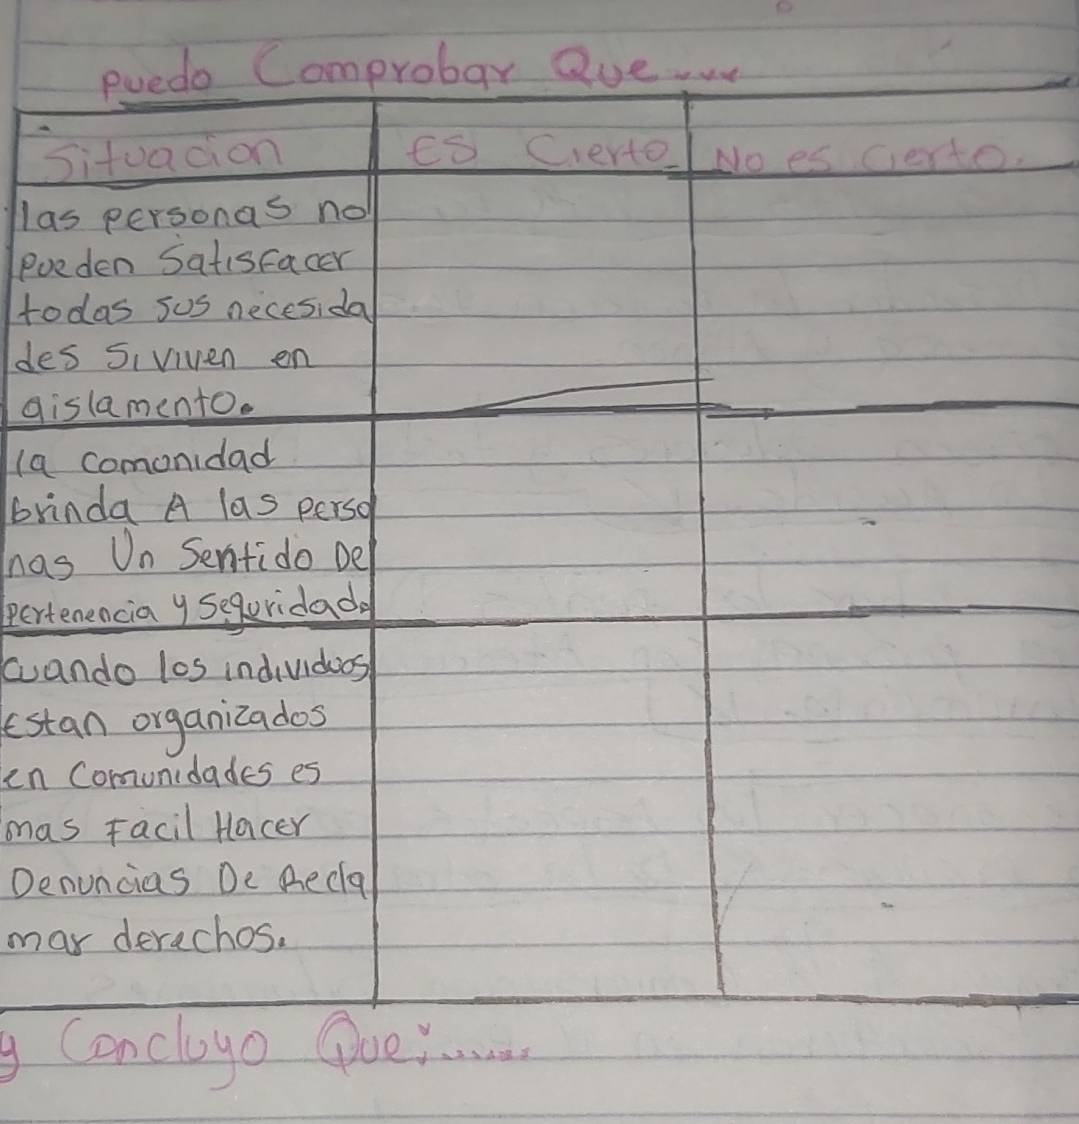 puedo Comprobar Que....
Situacion Es Cierto No es Cierto.
las personas no
pueden Satisfacer
todas sus necesida
des si viven en
aislamento.
la comonidad
brinda A las perso
nas Un Sentido De
pertenencia y seguridad.
cuando los individuos
Estan organizados
en Comunidades es
mas Facil Hacer
Denuncias De Recla
mar derechos.
y Concluyo Que:......